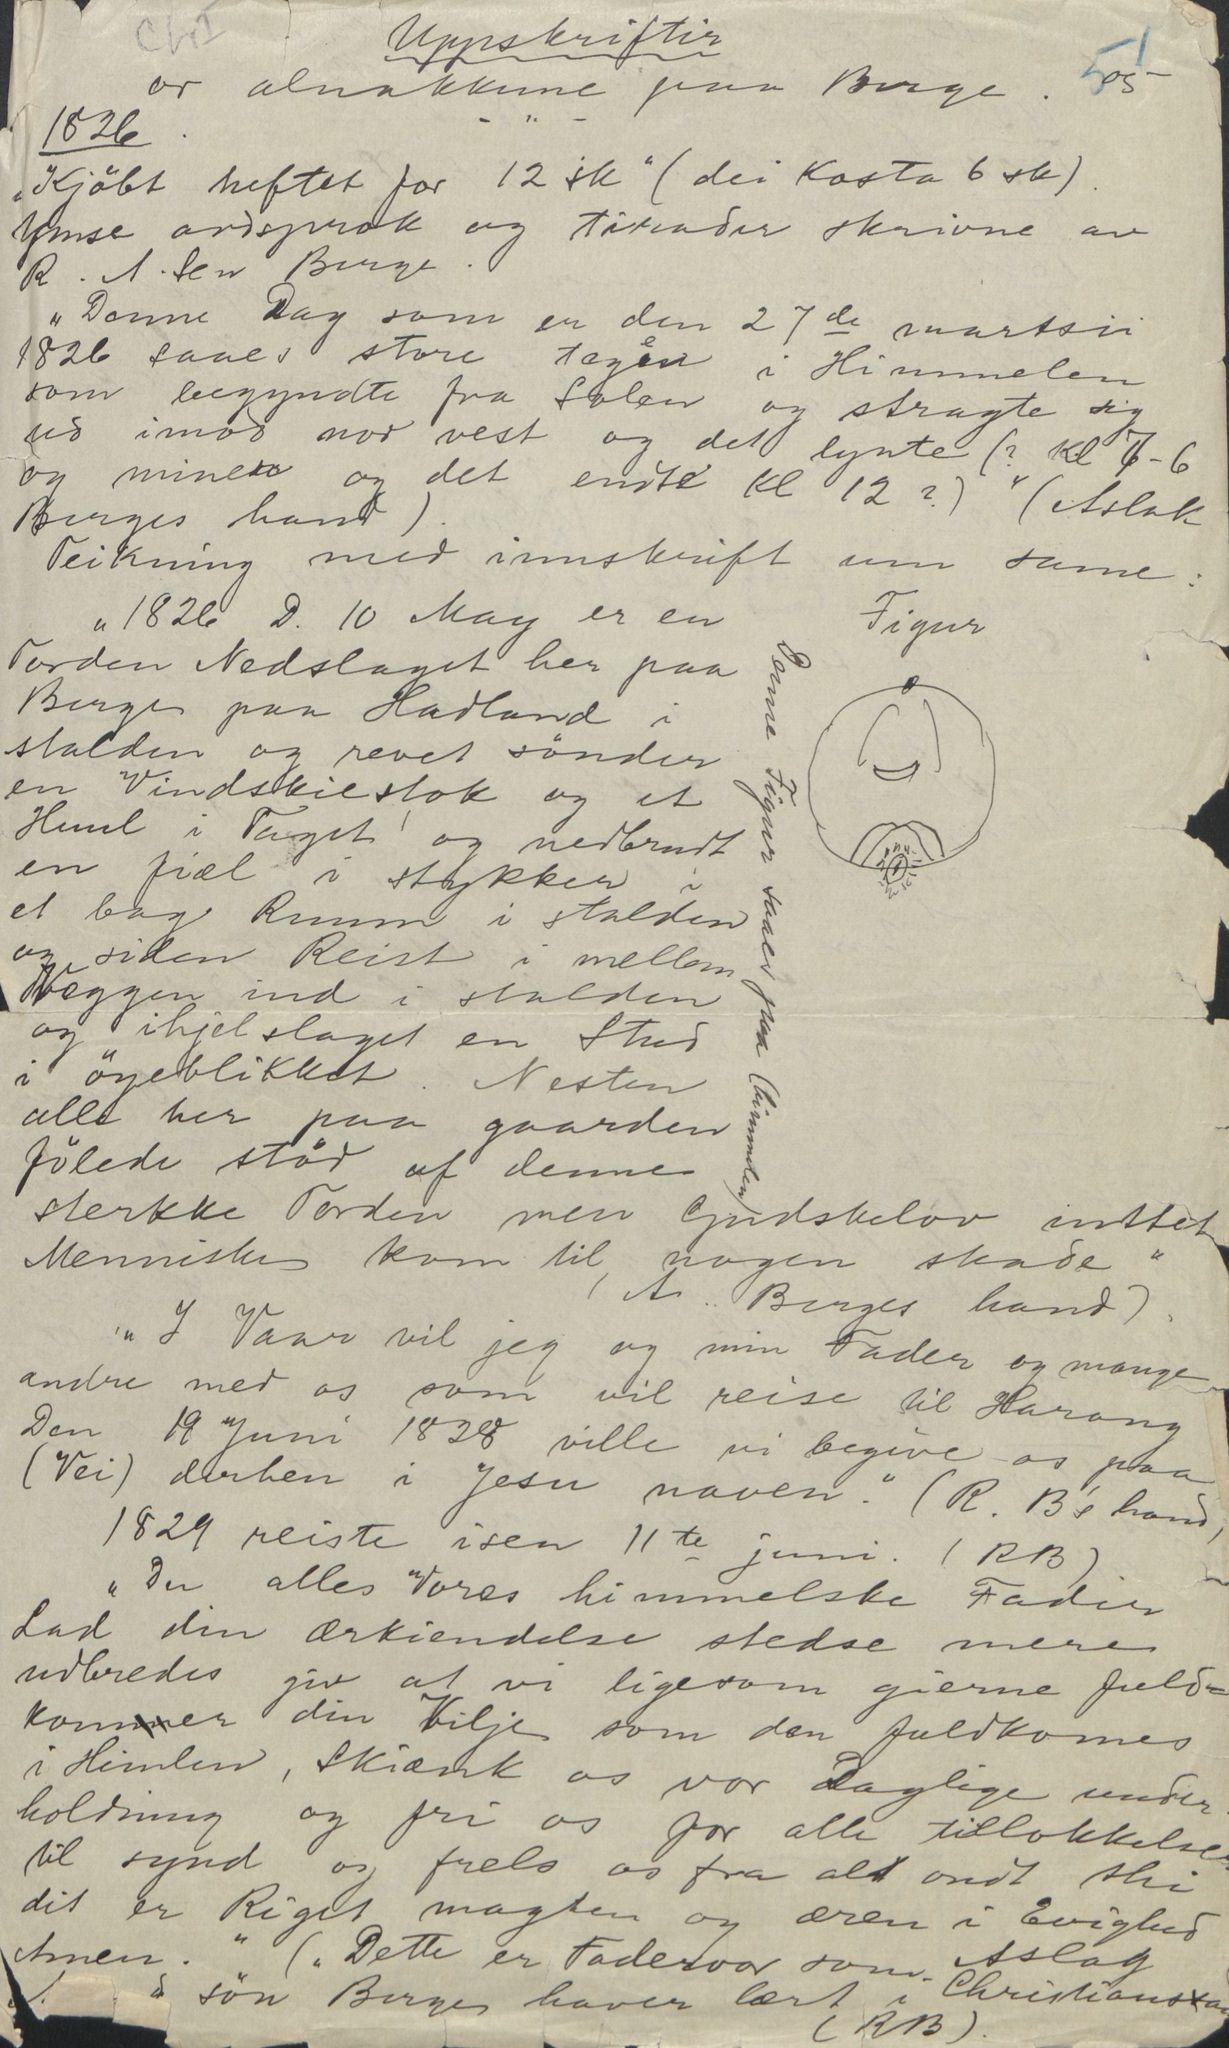 Uppskriftir
or alnakkune paa Berge.
1826.
"Kjöbt heftet for 12 sk" (dei kosta 6 sk).
Ymse ordsprok og tirader skrivne av
R. A. Sen Berge.
"Denne Dag som er den 27de martsii
1826 saaes store tegen i Himmelen
som begyndte fra Solen og stragte sig
ud imod nor vest og det lynte (? kl 7-6
og minero og det endte kl 12?)" (Aslak
Berges hand).
Teikning med innskrift um same:
"1826 D. 10 May er en
Torden Nedslaget her paa
Berge paa Hadland i
stalden og revet sönder
en Vindskiestok og et
Huul i Taget og nedbrudt
en fiæl i stykker i
et bag Ruum i stalden
og siden Reist i mellem
Væggen ind i stalden
og ihjelslaget en Stud
i öyeblikket. Nesten
alle her paa gaarden
fölede stöd af denne
sterkke Torden men Gudskelov inttet
Menniske kom til nogen skade"
(A. Berges hand).
Figur
Denne Figur saaes paa (himmelen)
"I Vaar vil jeg og min Fader og mange
andre med os som vil reise til Harang
Den 19 Juni 1828 ville vi begive os paa
(Vei) derhen i Jesu naven." (R. B's hand)
1829 reiste isen 11te juni. (RB)
"Du alles Vores himmelske Fader
Lad din ærkiendelse stedse mere
udbredes giv at vi ligesom gierne fuld=
kommer din Vilje som den fuldkomes
i Himlen, Skiænk os vor Daglige under
holdning og fri os for alle tillokkelser
til synd og frels os fra alt ondt thi
dit er Riget magten og æren i Evighed
Amen." ("Dette er Fadervor som Aslag
sön Berge haver lært i Christians
(RB).